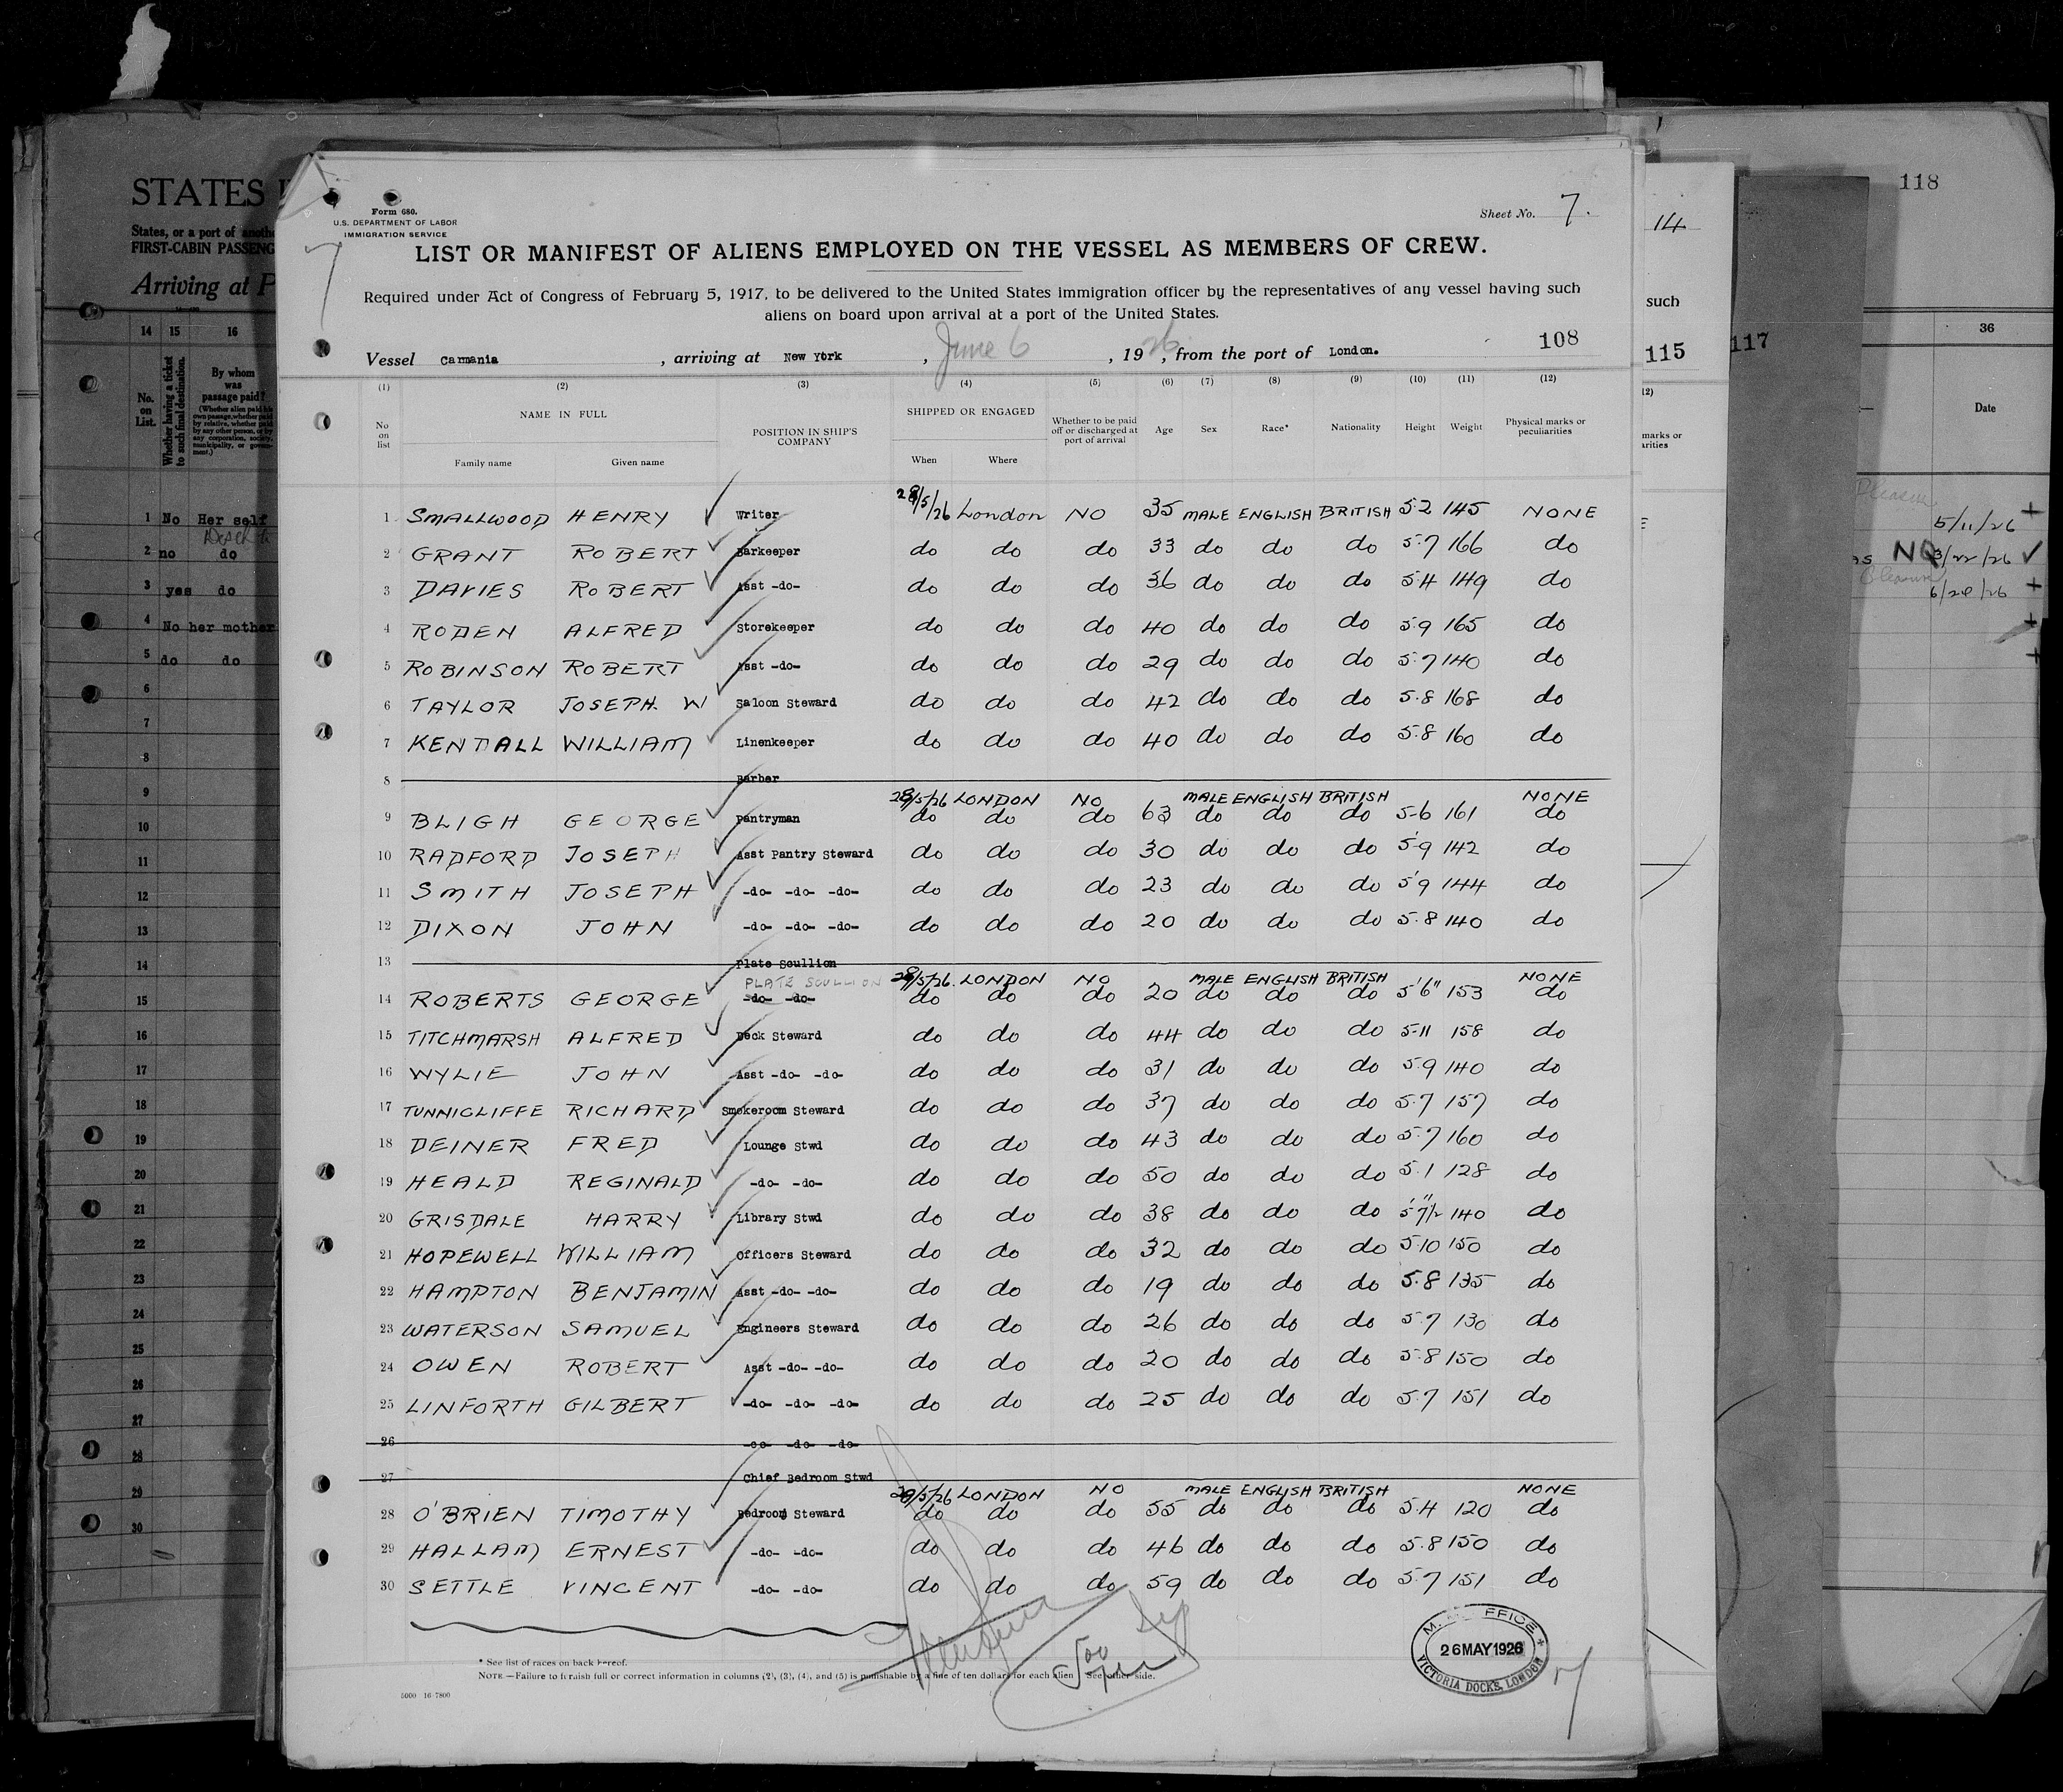 118
14
STATES
States, or a port of
FIRST-CABIN PASSENG
Arriving at P
such
115
117
14 15 16
No. on List.
Whether having a ticket to such final destination.
By whom was passage paid?
1 No Her self
2 no do
3 yes do
4 No her mother
5 do do
6
7
8
9
10
11
12
13
14
15
16
17
18
19
20
21
22
23
24
25
26
27
28
29
30
36
Date
5/11/26 +
NO 3/22/26 ✓
6/28/26 +
Form 680.
U.S. DEPARTMENT OF LABOR
IMMIGRATION SERVICE
Sheet No. 7.
7
LIST OR MANIFEST OF ALIENS EMPLOYED ON THE VESSEL AS MEMBERS OF CREW.
Required under Act of Congress of February 5, 1917, to be delivered to the United States immigration officer by the representatives of any vessel having such
aliens on board upon arrival at a port of the United States.
108
Vessel Carmania, arriving at New York, June 6, 1926, from the port of London.
(1) (2) (3) (4) (5) (6) (7) (8) (9) (10) (11) (12)
No on list NAME IN FULL Family name Given name POSITION IN SHIP'S COMPANY SHIPPED OR ENGAGED When Where Whether to be paid off or discharged at port of arrival Age Sex Race* Nationality Height Weight Physical marks or peculiarities
1 SMALLWOOD HENRY Writer 28/5/26 London NO 35 MALE ENGLISH BRITISH 5.2 145 NONE
2 GRANT ROBERT Barkeeper do do do 33 do do do 5.7 166 do
3 DAVIES ROBERT Asst -do- do do do 36 do do do 5.4 149 do
4 RODEN ALFRED Storekeeper do do do 40 do do do 5.9 165 do
5 ROBINSON ROBERT Asst -do- do do do 29 do do do 5.7 140 do
6 TAYLOR JOSEPH. W Saloon Steward do do do 42 do do do 5.8 168 do
7 KENDALL WILLIAM Linenkeeper do do do 40 do do do 5.8 160 do
8 Barber
28/5/26 LONDON NO MALE ENGLISH BRITISH NONE
9 BLIGH GEORGE Pantryman do do do 63 do do do 5-6 161 do
10 RADFORD JOSEPH Asst Pantry Steward do do do 30 do do do 5'9 142 do
11 SMITH JOSEPH -do- -do- -do- do do do 23 do do do 5'9 144 do
12 DIXON JOHN -do- -do- -do- do do do 20 do do do 5.8 140 do
13 Plate Scullion
PLATE SCULLION 28/5/26. LONDON NO MALE ENGLISH BRITISH NONE
14 ROBERTS GEORGE -do- -do- do do do 20 do do do 5'6" 153 do
15 TITCHMARSH ALFRED Deck Steward do do do 44 do do do 5-11 158 do
16 WYLIE JOHN Asst -do- -do- do do do 31 do do do 5.9 140 do
17 TUNNICLIFFE RICHARD Smokeroom Steward do do do 37 do do do 5.7 157 do
18 DEINER FRED Lounge Stwd do do do 43 do do do 5.7 160 do
19 HEALD REGINALD -do- -do- do do do 50 do do do 5.1 128 do
20 GRISDALE HARRY Library Stwd do do do 38 do do do 5'7½" 140 do
21 HOPEWELL WILLIAM Officers Steward do do do 32 do do do 5.10 150 do
22 HAMPTON BENJAMIN Asst -do- -do- do do do 19 do do do 5.8 135 do
23 WATERSON SAMUEL Engineers Steward do do do 26 do do do 5.7 130 do
24 OWEN ROBERT Asst -do- -do- do do do 20 do do do 5.8 150 do
25 LINFORTH GILBERT -do- -do- -do- do do do 25 do do do 5.7 151 do
26 -do- -do- -do-
27 Chief Bedroom Stwd
28/5/26 LONDON NO MALE ENGLISH BRITISH NONE
28 O'BRIEN TIMOTHY Bedroom Steward do do do 55 do do do 5.4 120 do
29 HALLAM ERNEST -do- -do- do do do 46 do do do 5.8 150 do
30 SETTLE VINCENT -do- -do- do do do 59 do do do 5.7 151 do
* See list of races on back hereof.
NOTE.—Failure to furnish full or correct information in columns (2), (3), (4), and (5) is punishable by a fine of ten dollars for each alien. See other side.
5000 16-7800
26 MAY 1926
VICTORIA DOCKS, LONDON
7